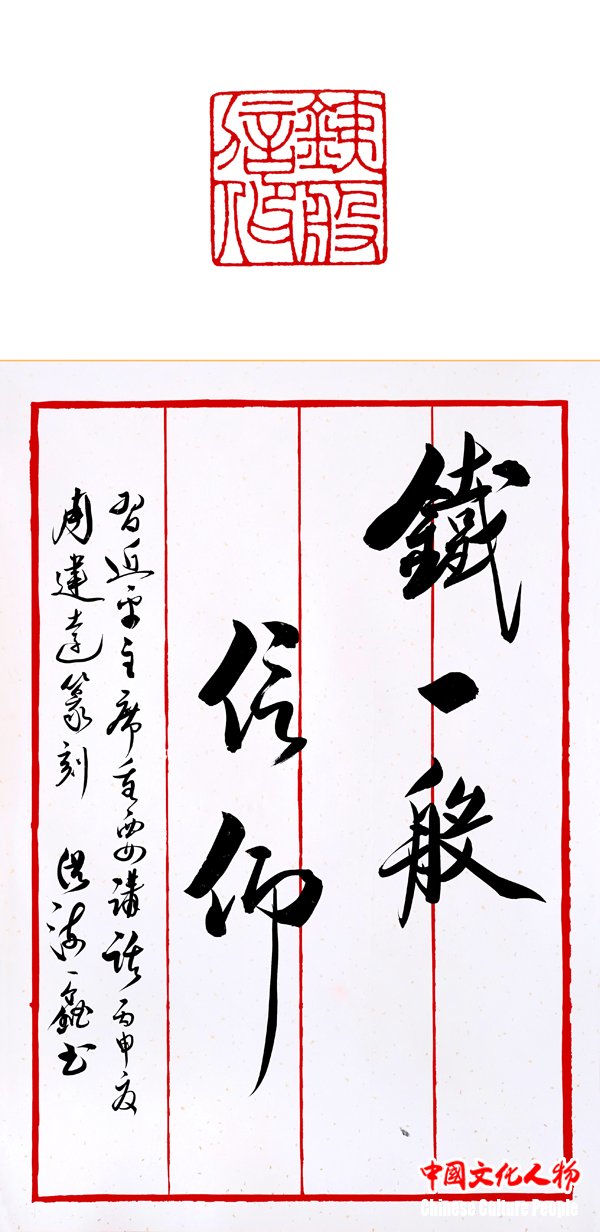 銕般
信仰
鐵一般
信仰
習近平主席重要講話丙申夏
周建遠篆刻 洪 书
中國文化人物
Chinese Culture People